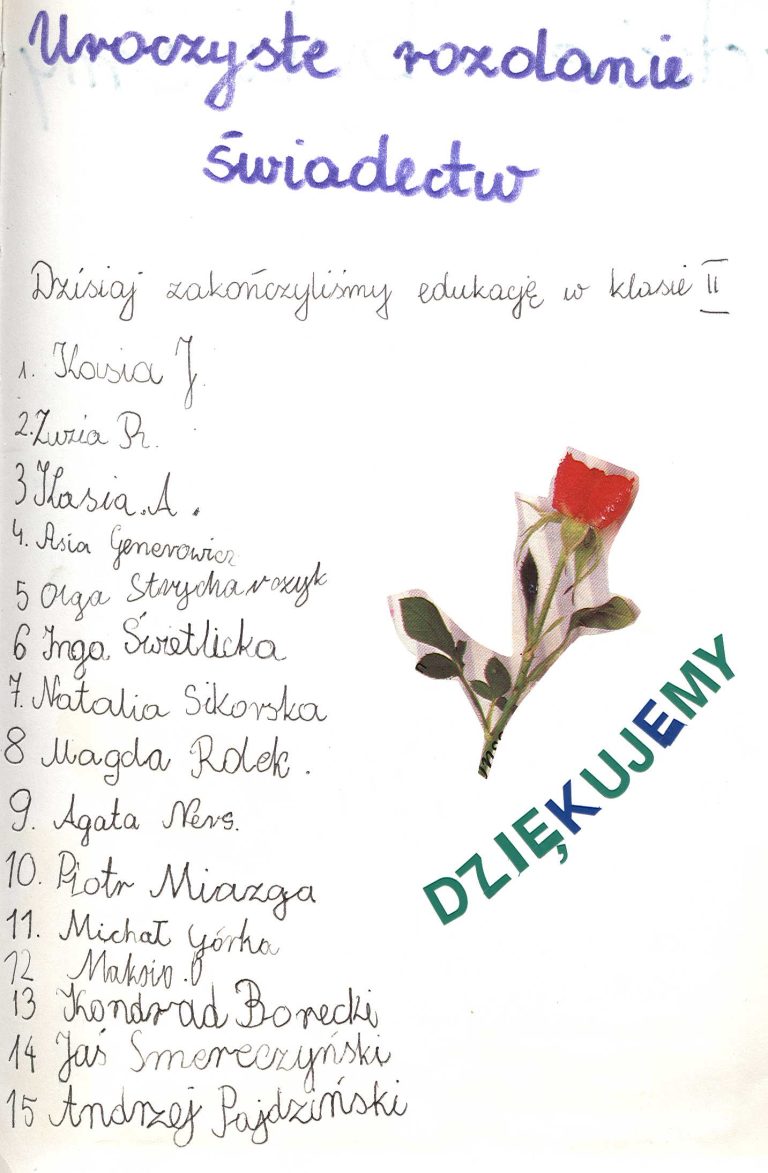 Uroczyste rozdanie
świadectw
Dzisiaj zakończyliśmy edukację w klasie II
1. Kasia J.
2. Zuzia R.
3 Kasia. A.
4. Asia Generowicz
5 Olga Strycharczyk
6 Inga Świetlicka
7. Natalia Sikorska
8 Magda Rolek.
9. Agata Ners.
10. Piotr Miazga
11. Michał Górka
12 O
13 Kondrad Borecki
14 Jaś Smereczyński
15 Andrzej Pajdziński
DZIĘKUJEMY